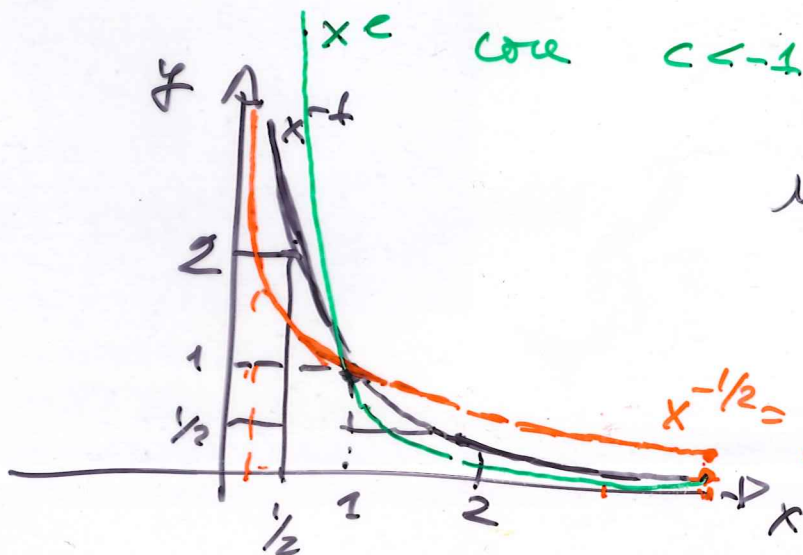 x^c con c < -1
y
x^-1
2
1
1/2
x^-1/2 =
1/2 1 2 x